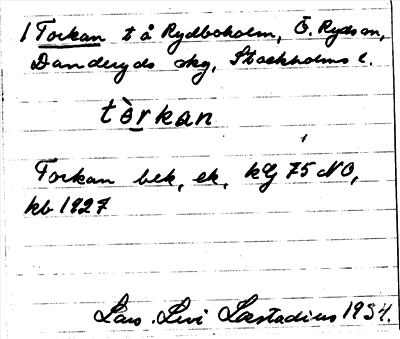 1 Torkan t å Rydboholm, Ö. Ryds sn,
Danderyds skg, Stockholms l.
tòrkan
Torkan bek, ek, kg 75 NO,
kb 1927
Lars Levi Læstadius 1934.